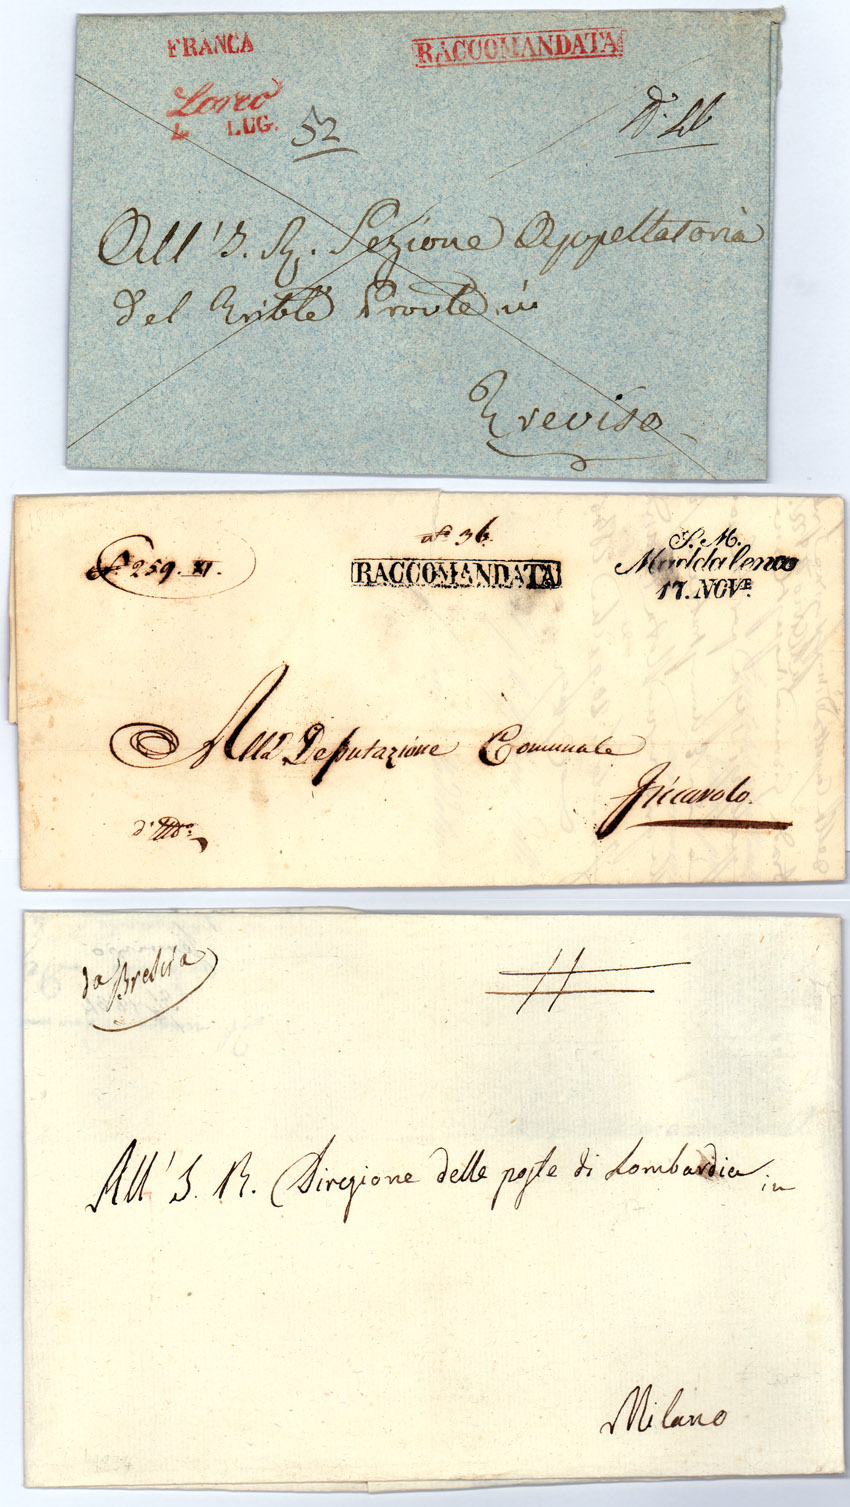 FRANCA
RACCOMANDATA
Loreo
L LUG.
52
All' I. R. Sezione Appellatoria
del Trible Provle in
Treviso
No 36
No 259. XI.
RACCOMANDATA
S. M.
Maddalena
17. NOVE.
Alla Deputazione Comunale
Ficcarolo.
da Brescia
All' I. R. Direzione delle poste di Lombardia in
Milano